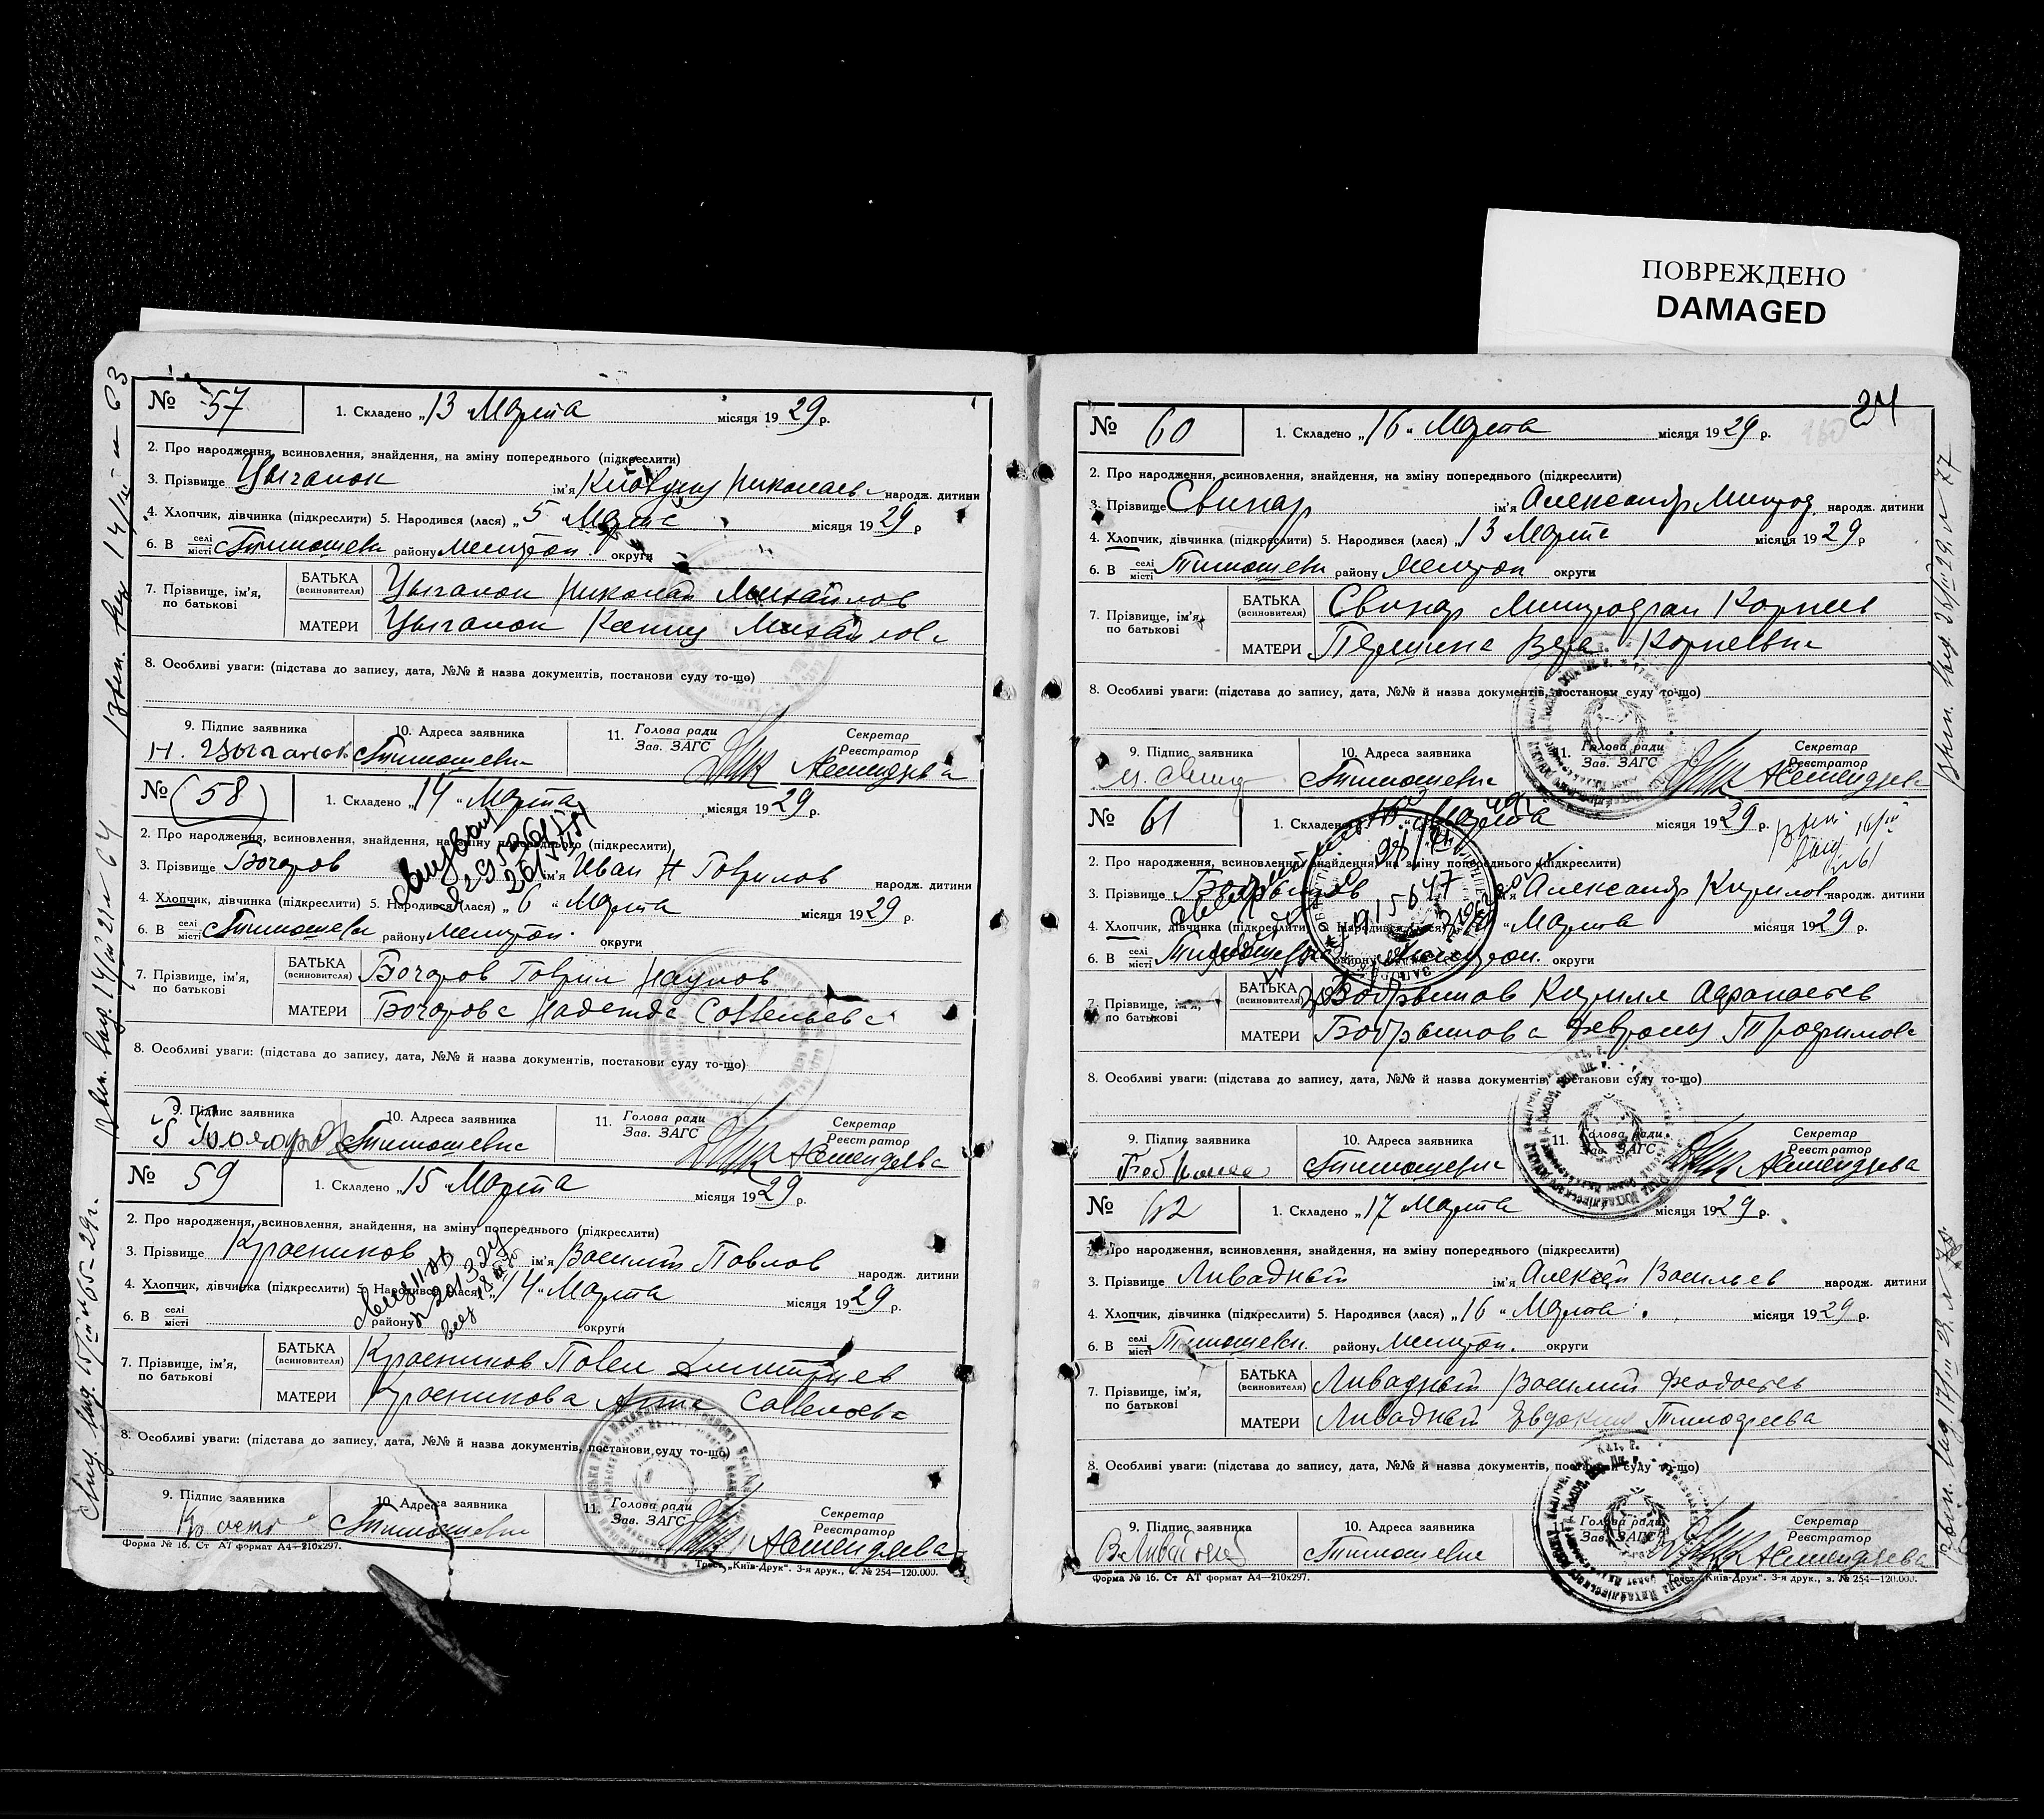 ПОВРЕЖДЕНО
DAMAGED
№ 57
1. Складено „13 Марта місяця 1929 р.
2. Про народження, всиновлення, знайдення, на зміну попереднього (підкреслити)
3. Прізвище Цыганок ім'я Николаев народж. дитини
4. Хлопчик, дівчинка (підкреслити) 5. Народився (лася) „5 Марта місяця 1929 р
6. В селі місті Тимошевк району Мелитоп. округи
7. Прізвище, ім'я, по батькові
БАТЬКА (всиновителя) Цыганок Николай Михайлов
МАТЕРИ Цыганок Ксения Михайлов
8. Особливі уваги: (підстава до запису, дата, №№ й назва документів, постанови суду то-що)
9. Підпис заявника 10. Адреса заявника 11. Голова ради Зав. ЗАГС Секретар Реєстратор
Н. Цыганков Тимошевк
№ 58
1. Складено „14 „ Марта місяця 1929 р.
2. Про народження, всиновлення, знайдення, на зміну попереднього (підкреслити)
3. Прізвище Бочаров ім'я Иван Гаврилов народж. дитини
4. Хлопчик, дівчинка (підкреслити) 5. Народився (лася) „ 6 „ Марта місяця 1929 р.
6. В селі місті Тимошевк району Мелитоп. округи
7. Прізвище, ім'я, по батькові
БАТЬКА (всиновителя) Бочаров Гаврил Наумов
МАТЕРИ Бочарова Надежда Савельева
8. Особливі уваги: (підстава до запису, дата, №№ й назва документів, постанови суду то-що)
9. Підпис заявника 10. Адреса заявника 11. Голова ради Зав. ЗАГС Секретар Реєстратор
Г Бочаров Тимошевка
№ 59
1. Складено „15 „ Марта місяця 1929 р.
2. Про народження, всиновлення, знайдення, на зміну попереднього (підкреслити)
3. Прізвище Красников ім'я Василий Павлов народж. дитини
4. Хлопчик, дівчинка (підкреслити) 5. Народився (лася) „14 „ Марта місяця 1929 р.
6. В селі місті району округи
7. Прізвище, ім'я, по батькові
БАТЬКА (всиновителя) Красников Павел Дмитриев
МАТЕРИ Красникова Анна Савельева
8. Особливі уваги: (підстава до запису, дата, №№ й назва документів, постанови суду то-що)
9. Підпис заявника 10. Адреса заявника 11. Голова ради Зав. ЗАГС Секретар Реєстратор
Тимошевка
Форма № 16. Ст АТ формат А4—210х297.
Трест „Київ-Друк". 3-я друк., з. № 254—120.000.
24
№ 60
1. Складено „16 „ Марта місяця 1929 р.
2. Про народження, всиновлення, знайдення, на зміну попереднього (підкреслити)
3. Прізвище Свинар ім'я Александр Митрод. народж. дитини
4. Хлопчик, дівчинка (підкреслити) 5. Народився (лася) „13 Марта місяця 1929 р
6. В селі місті Тимошевк району Мелитоп округи
7. Прізвище, ім'я, по батькові
БАТЬКА (всиновителя) Свинар Митрофан Корнеев
МАТЕРИ Першина Вера Корнеевна
8. Особливі уваги: (підстава до запису, дата, №№ й назва документів, постанови суду то-що)
9. Підпис заявника 10. Адреса заявника 11. Голова ради Зав. ЗАГС Секретар Реєстратор
Тимошевка
№ 61
1. Складено „16 „ Марта місяця 1929 р.
2. Про народження, всиновлення, знайдення, на зміну попереднього (підкреслити)
3. Прізвище Бобрышов ім'я Александр Кирилов народж. дитини
4. Хлопчик, дівчинка (підкреслити) 5. Народився (лася) „ Марта місяця 1929 р.
6. В селі місті Тимошевк району Мелитоп. округи
7. Прізвище, ім'я, по батькові
БАТЬКА (всиновителя) Бобрышов Кирилл Афанасьев
МАТЕРИ Бобрышова Феврония Трофимова
8. Особливі уваги: (підстава до запису, дата, №№ й назва документів, постанови суду то-що)
9. Підпис заявника 10. Адреса заявника 11. Голова ради Зав. ЗАГС Секретар Реєстратор
Тимошевка
№ 62
1. Складено „17 Марта місяця 1929 р.
2. Про народження, всиновлення, знайдення, на зміну попереднього (підкреслити)
3. Прізвище Ливадный ім'я Алексей Васильев народж. дитини
4. Хлопчик, дівчинка (підкреслити) 5. Народився (лася) „16 „ Марта місяця 1929 р.
6. В селі місті Тимошевк. району Мелитоп. округи
7. Прізвище, ім'я, по батькові
БАТЬКА (всиновителя) Ливадный Василий Феодосиев
МАТЕРИ Ливадный Евдокия Тимофеева
8. Особливі уваги: (підстава до запису, дата, №№ й назва документів, постанови суду то-що)
9. Підпис заявника 10. Адреса заявника 11. Голова ради Зав. ЗАГС Секретар Реєстратор
Тимошевка
Форма № 16. Ст АТ формат А4—210х297.
Трест „Київ-Друк". 3-я друк., з. № 254—120.000.